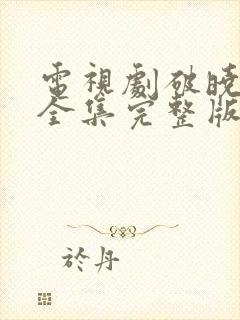 電視劇破曉
全集完整版
於丹